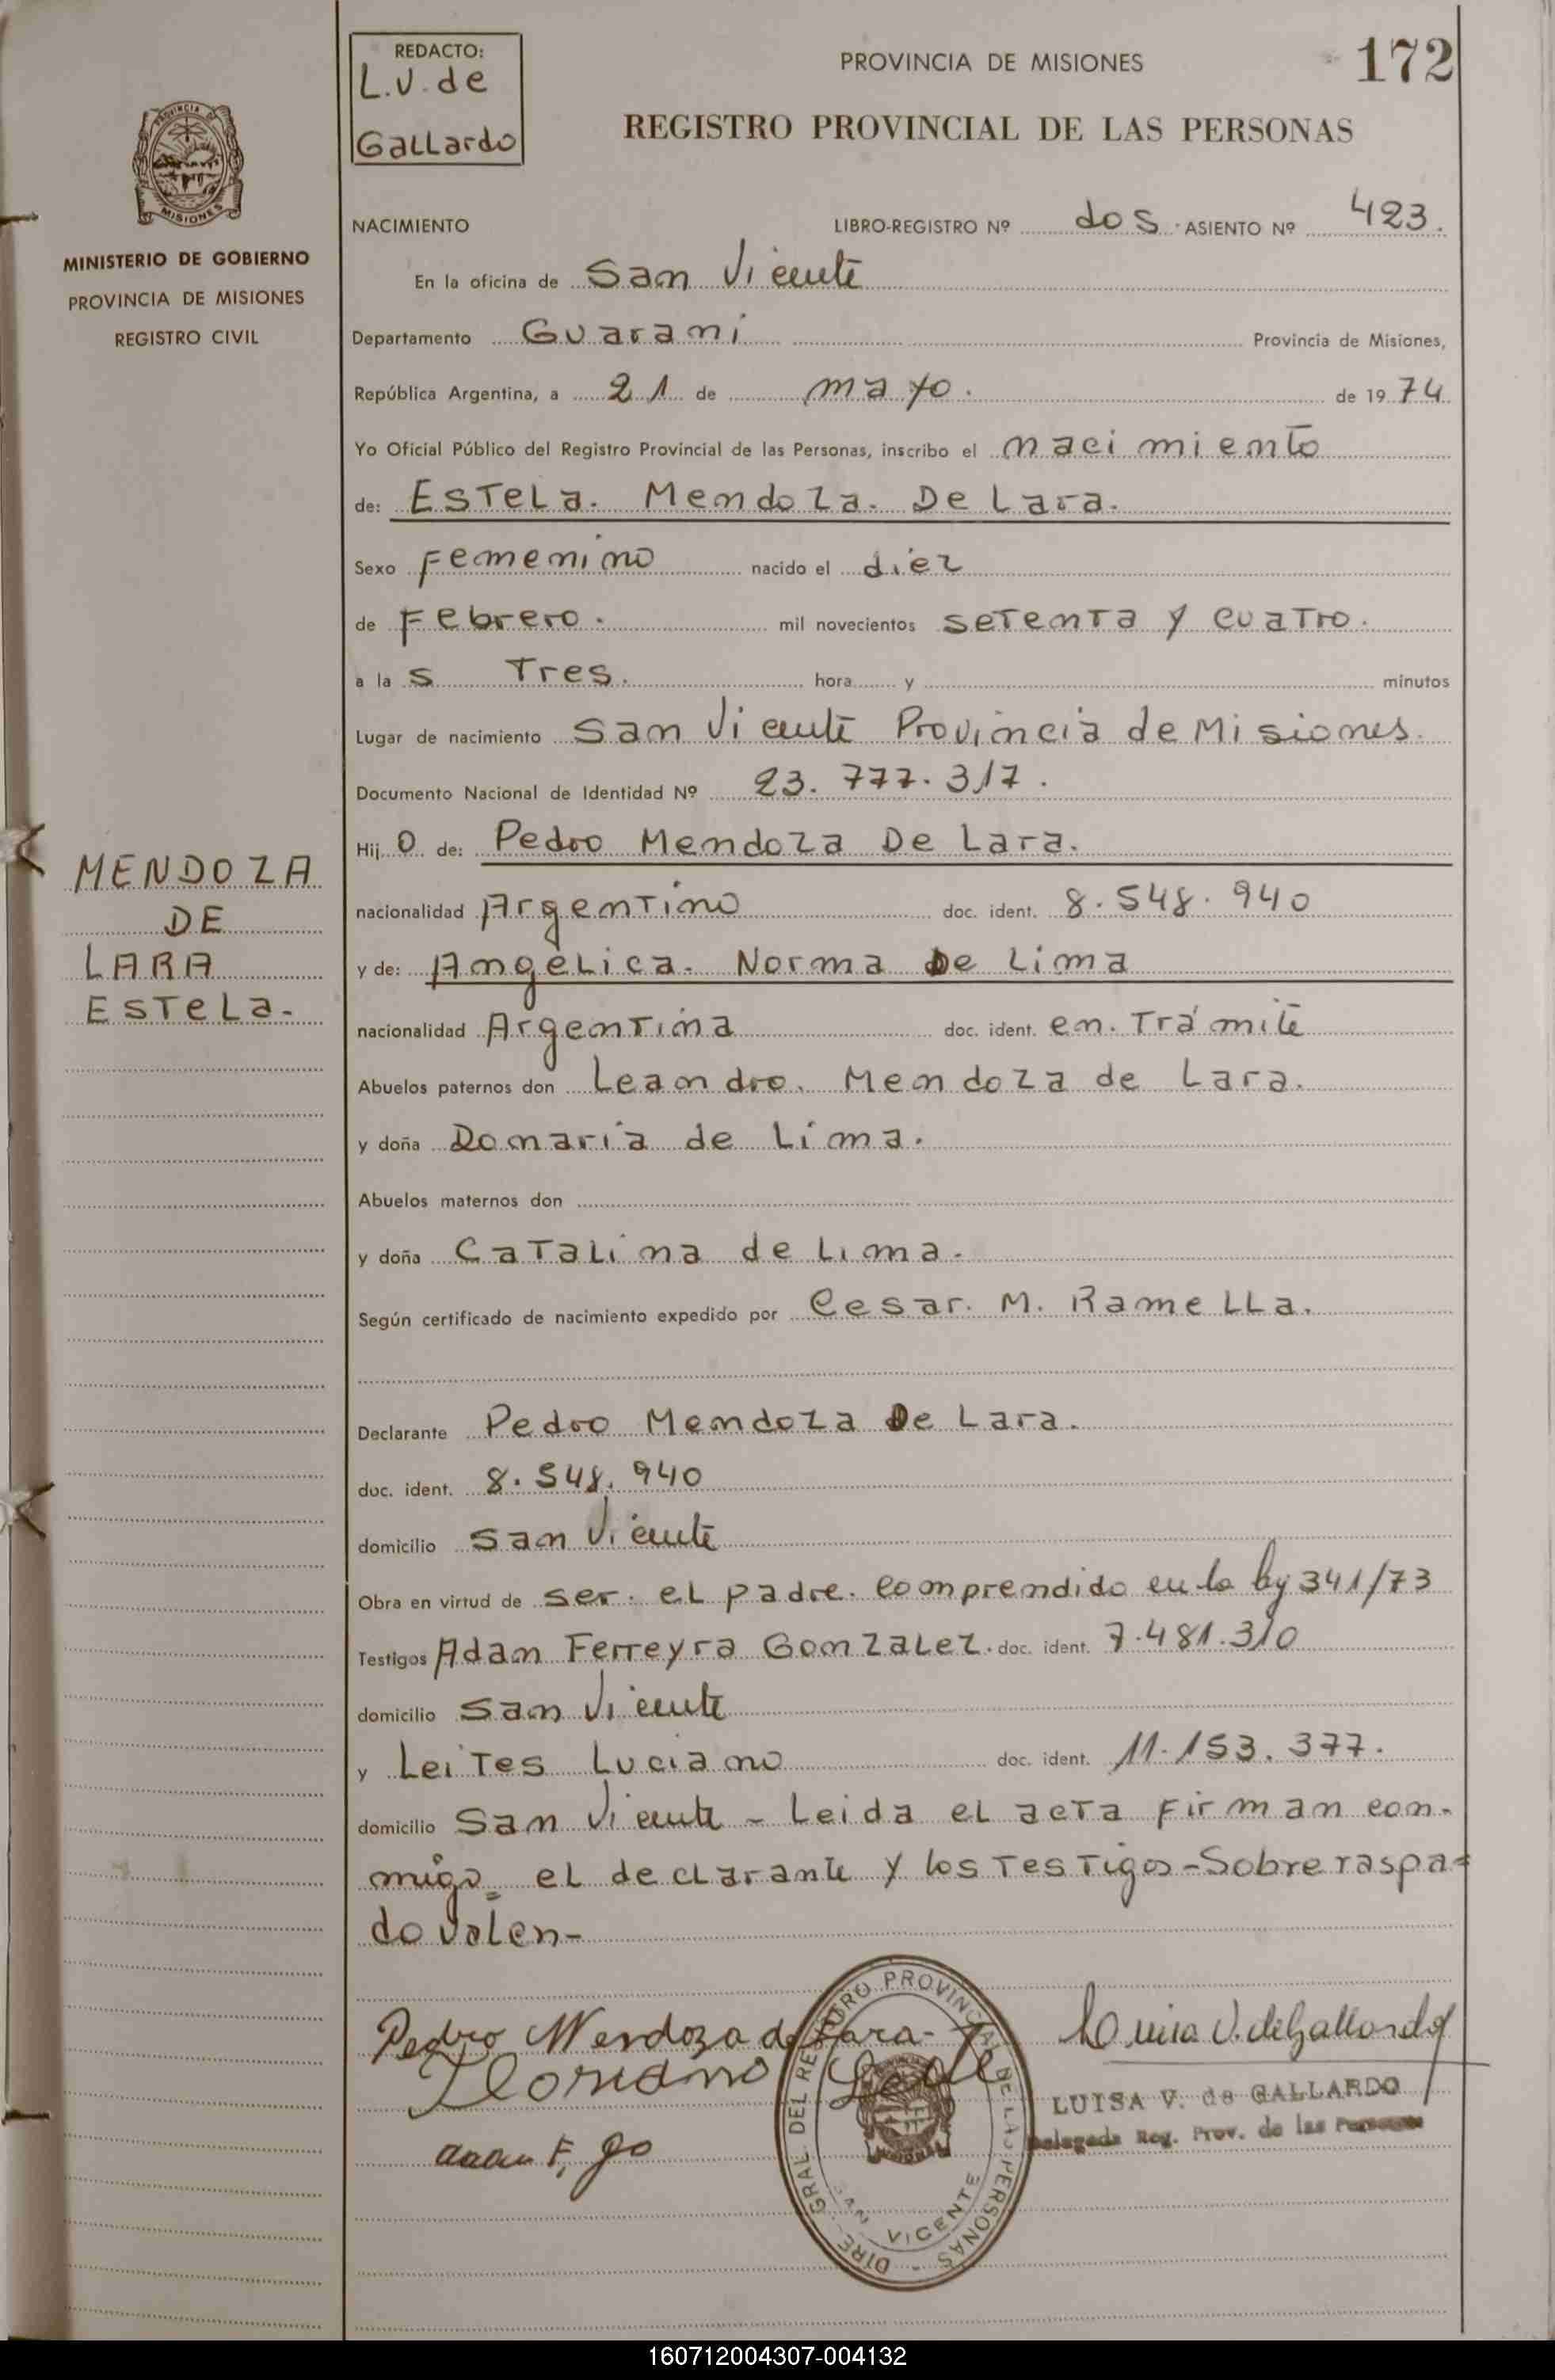 REDACTO:
L.V. de
Gallardo
PROVINCIA DE MISIONES
172
REGISTRO PROVINCIAL DE LAS PERSONAS
PROVINCIA DE
MISIONES
MINISTERIO DE GOBIERNO
PROVINCIA DE MISIONES
REGISTRO CIVIL
NACIMIENTO LIBRO-REGISTRO Nº dos. ASIENTO Nº 423.
En la oficina de San Vicente
Departamento Guaraní Provincia de Misiones,
República Argentina, a 21 de mayo. de 1974
Yo Oficial Público del Registro Provincial de las Personas, inscribo el nacimiento
de: Estela. Mendoza. De Lara.
Sexo Femenino nacido el diez
de Febrero. mil novecientos setenta y cuatro.
a las Tres. hora y minutos
Lugar de nacimiento San Vicente Provincia de Misiones.
Documento Nacional de Identidad Nº 23.777.317.
Hij o de: Pedro Mendoza De Lara.
nacionalidad Argentino doc. ident. 8.548.940
y de: Angelica. Norma De Lima
nacionalidad Argentina doc. ident. en. Trámite
Abuelos paternos don Leandro. Mendoza de Lara.
y doña Domaria de Lima.
Abuelos maternos don
y doña Catalina de Lima.
Según certificado de nacimiento expedido por Cesar. M. Ramella.
Declarante Pedro Mendoza De Lara.
doc. ident. 8.548.940
domicilio San Vicente
Obra en virtud de ser. el padre. comprendido en la ley 341/73
Testigos Adam Ferreyra Gonzalez. doc. ident. 7.481.310
domicilio San Vicente
y Leites Luciano doc. ident. 11.153.377.
domicilio San Vicente - Leida el acta firman con-
migo el declarante y los testigos - Sobre raspa=
do valen-
MENDOZA
DE
LARA
Estela.
Pedro Mendoza de Lara-
Luisa V. de Gallardo
LUISA V. de GALLARDO
Delegada Reg. Prov. de las Personas
DIRE. GRAL DEL REGISTRO PROVINCIAL DE LAS PERSONAS
SAN VICENTE
160712004307-004132